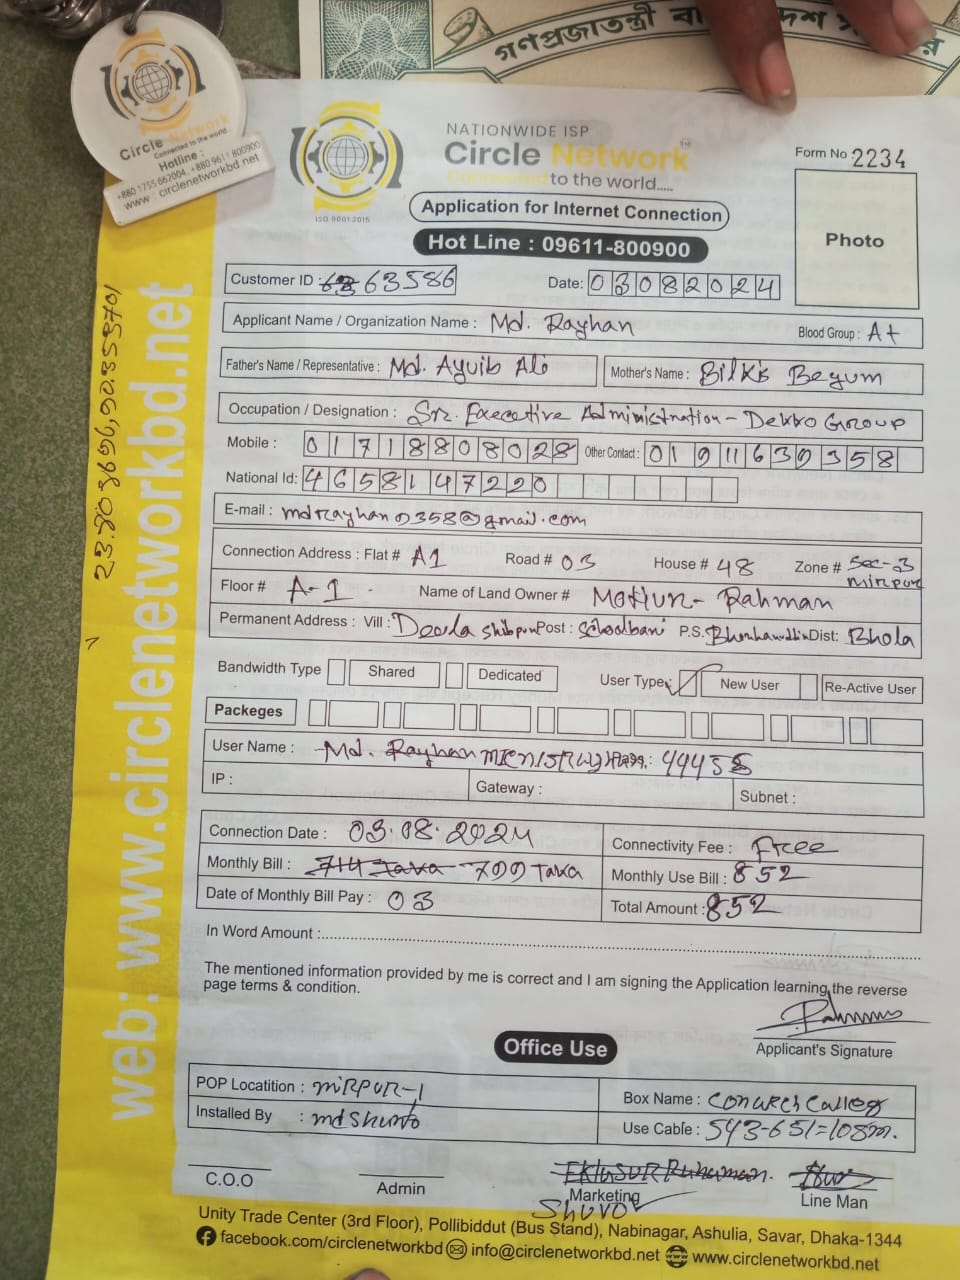 গণপ্রজাতন্ত্রী বা দেশ স র
Circle Network
Connected to the world..
Hotline :
+880 1755 662004, +880 9611 800900
www : circlenetworkbd.net
NATIONWIDE ISP
Circle Network TM
Connected to the world.....
ISO 9001:2015
Application for Internet Connection
Hot Line : 09611-800900
Form No : 2234
Photo
Customer ID : 63586
Date: 03082024
Applicant Name / Organization Name : Md. Rayhan Blood Group : A+
Father's Name / Representative : Md. Ayuib Ali Mother's Name : Bilkis Begum
Occupation / Designation : Snr. Executive Administration - Dekko Group
Mobile : 01718808028 Other Contact : 01911639358
National Id: 4658147220
E-mail : mdrayhan0358@gmail.com
Connection Address : Flat # A1 Road # 03 House # 48 Zone # Sec-3 Mirpur
Floor # A-1 Name of Land Owner # Rahman
Permanent Address : Vill : Deula Shibpur Post : P.S. Dist: Bhola
Bandwidth Type Shared Dedicated User Type: New User Re-Active User
Packeges
User Name : Md. Rayhan Pass:
IP : Gateway : Subnet :
Connection Date : 03.08.2024 Connectivity Fee : Free
Monthly Bill : 714 Taka 700 Taka Monthly Use Bill : 852
Date of Monthly Bill Pay : 03 Total Amount : 852
In Word Amount :
The mentioned information provided by me is correct and I am signing the Application learning the reverse
page terms & condition.
Applicant's Signature
Office Use
POP Locatition : MIRPUR-1 Box Name :
Installed By : Md Use Cable : 543-651=108m.
C.O.O Admin Marketing Line Man
Shuvo
Unity Trade Center (3rd Floor), Pollibiddut (Bus Stand), Nabinagar, Ashulia, Savar, Dhaka-1344
facebook.com/circlenetworkbd info@circlenetworkbd.net www.circlenetworkbd.net
web: www.circlenetworkbd.net
23.803696,90.353701